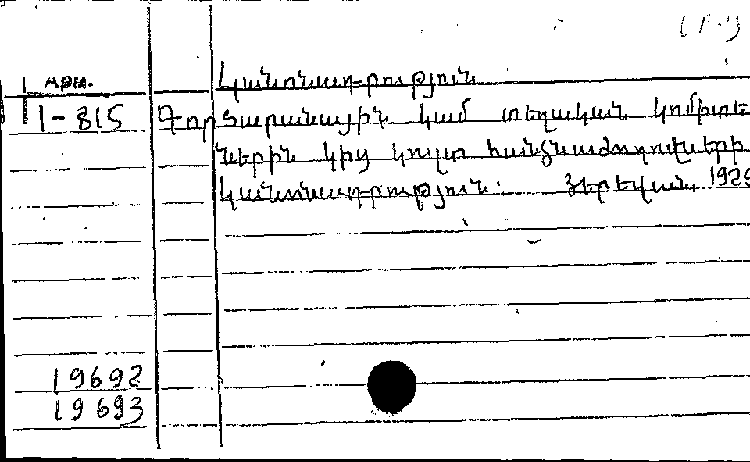 Կանոնադրություն
1-815 Գործարանային կամ տեղական կոմիտե
ներին կից կուլտ հանձնաժողովների
կանոնադրություն. Յերեվան, 192
19692
19693